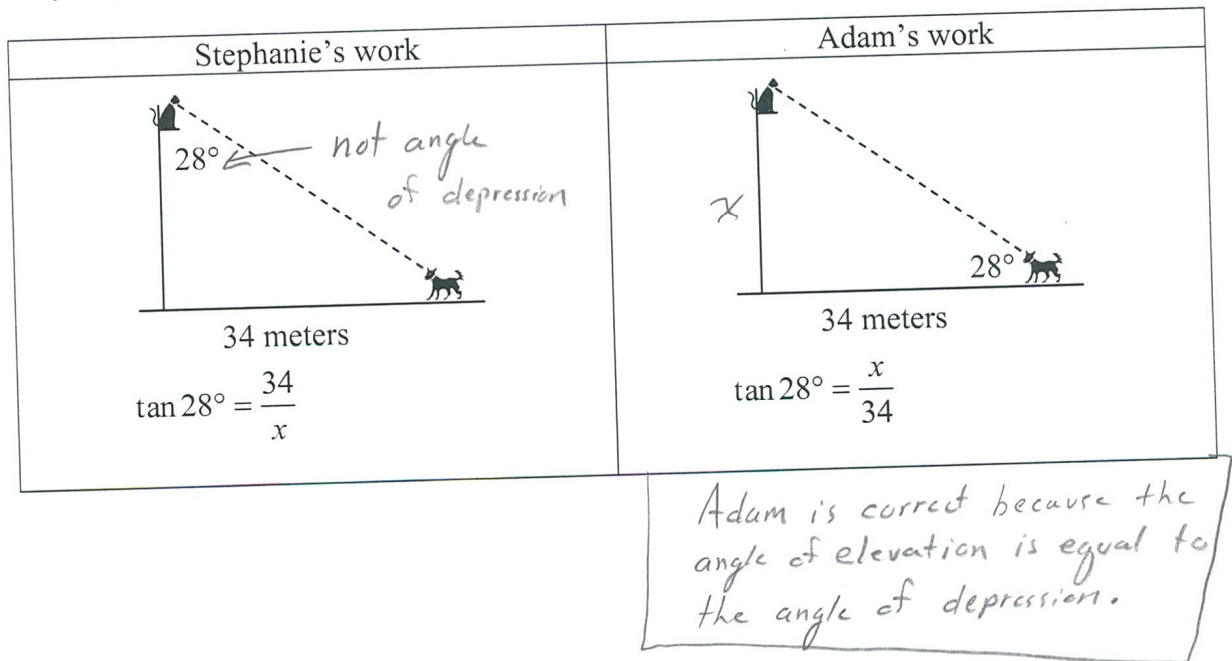 Stephanie's work
28°
not angle
of depression
34 meters
tan 28° = 34/x
Adam's work
x
28°
34 meters
tan 28° = x/34
Adam is correct because the
angle of elevation is equal to
the angle of depression.